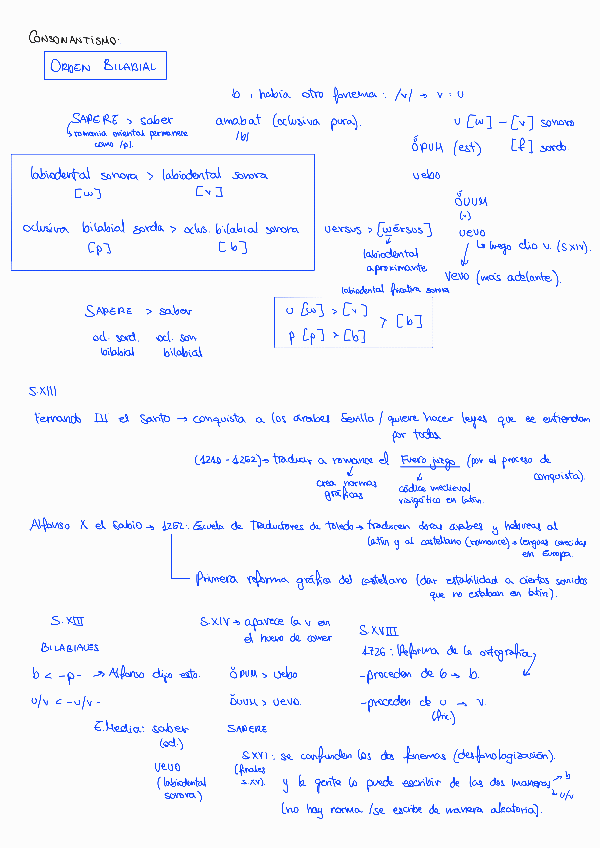 CONSONANTISMO.
ORDEN BILABIAL
b, había otro fonema: /v/ → v = u
SAPERE > saber
↳ romania oriental permanece como /p/.
amabat (oclusiva pura).
/b/
u [w] - [v] sonoro
[f] sordo
ŎPUM (est)
uebo
ŎUUM
uevo
↳ luego dio v. (S XIV).
vevo (más adelante).
labiodental sonora > labiodental sonora
[w] [v]
oclusiva bilabial sorda > oclus. bilabial sonora
[p] [b]
versus > [wérsus]
labiodental
aproximante
labiodental fricativa sonora
SAPERE > saber
ocl. sord. ocl. son
bilabial bilabial
u [w] > [v]
p [p] > [b]
> [b]
S.XIII
Fernando III el Santo → conquista a los árabes Sevilla / quiere hacer leyes que se entiendan
por todos.
(1210 - 1252) → traducir a romance el Fuero juzgo (por el proceso de
conquista).
crea normas
gráficas
códice medieval
visigótico en latín.
Alfonso X el Sabio → 1252: Escuela de Traductores de Toledo → traducen obras árabes y hebreas al
latín y al castellano (romance) → lenguas conocidas
en Europa.
Primera reforma gráfica del castellano (dar estabilidad a ciertos sonidos
que no estaban en latín).
S. XIII
BILABIALES
b < -p- → Alfonso dijo esto.
u/v < -u/v-
S.XIV → aparece la v en
el huevo de comer
ŎPUM > uebo
ŎUUM > uevo.
S.XVIII
1726: Reforma de la ortografía
- proceden de b → b.
- proceden de u → v.
E.Media: saber
(ocl.)
vevo
(labiodental
sonora)
SAPERE
S.XVI: se confunden los dos fonemas (desfonologización).
(finales
s.XV).
y la gente lo puede escribir de las dos maneras
b
u/v
(no hay norma / se escribe de manera aleatoria).